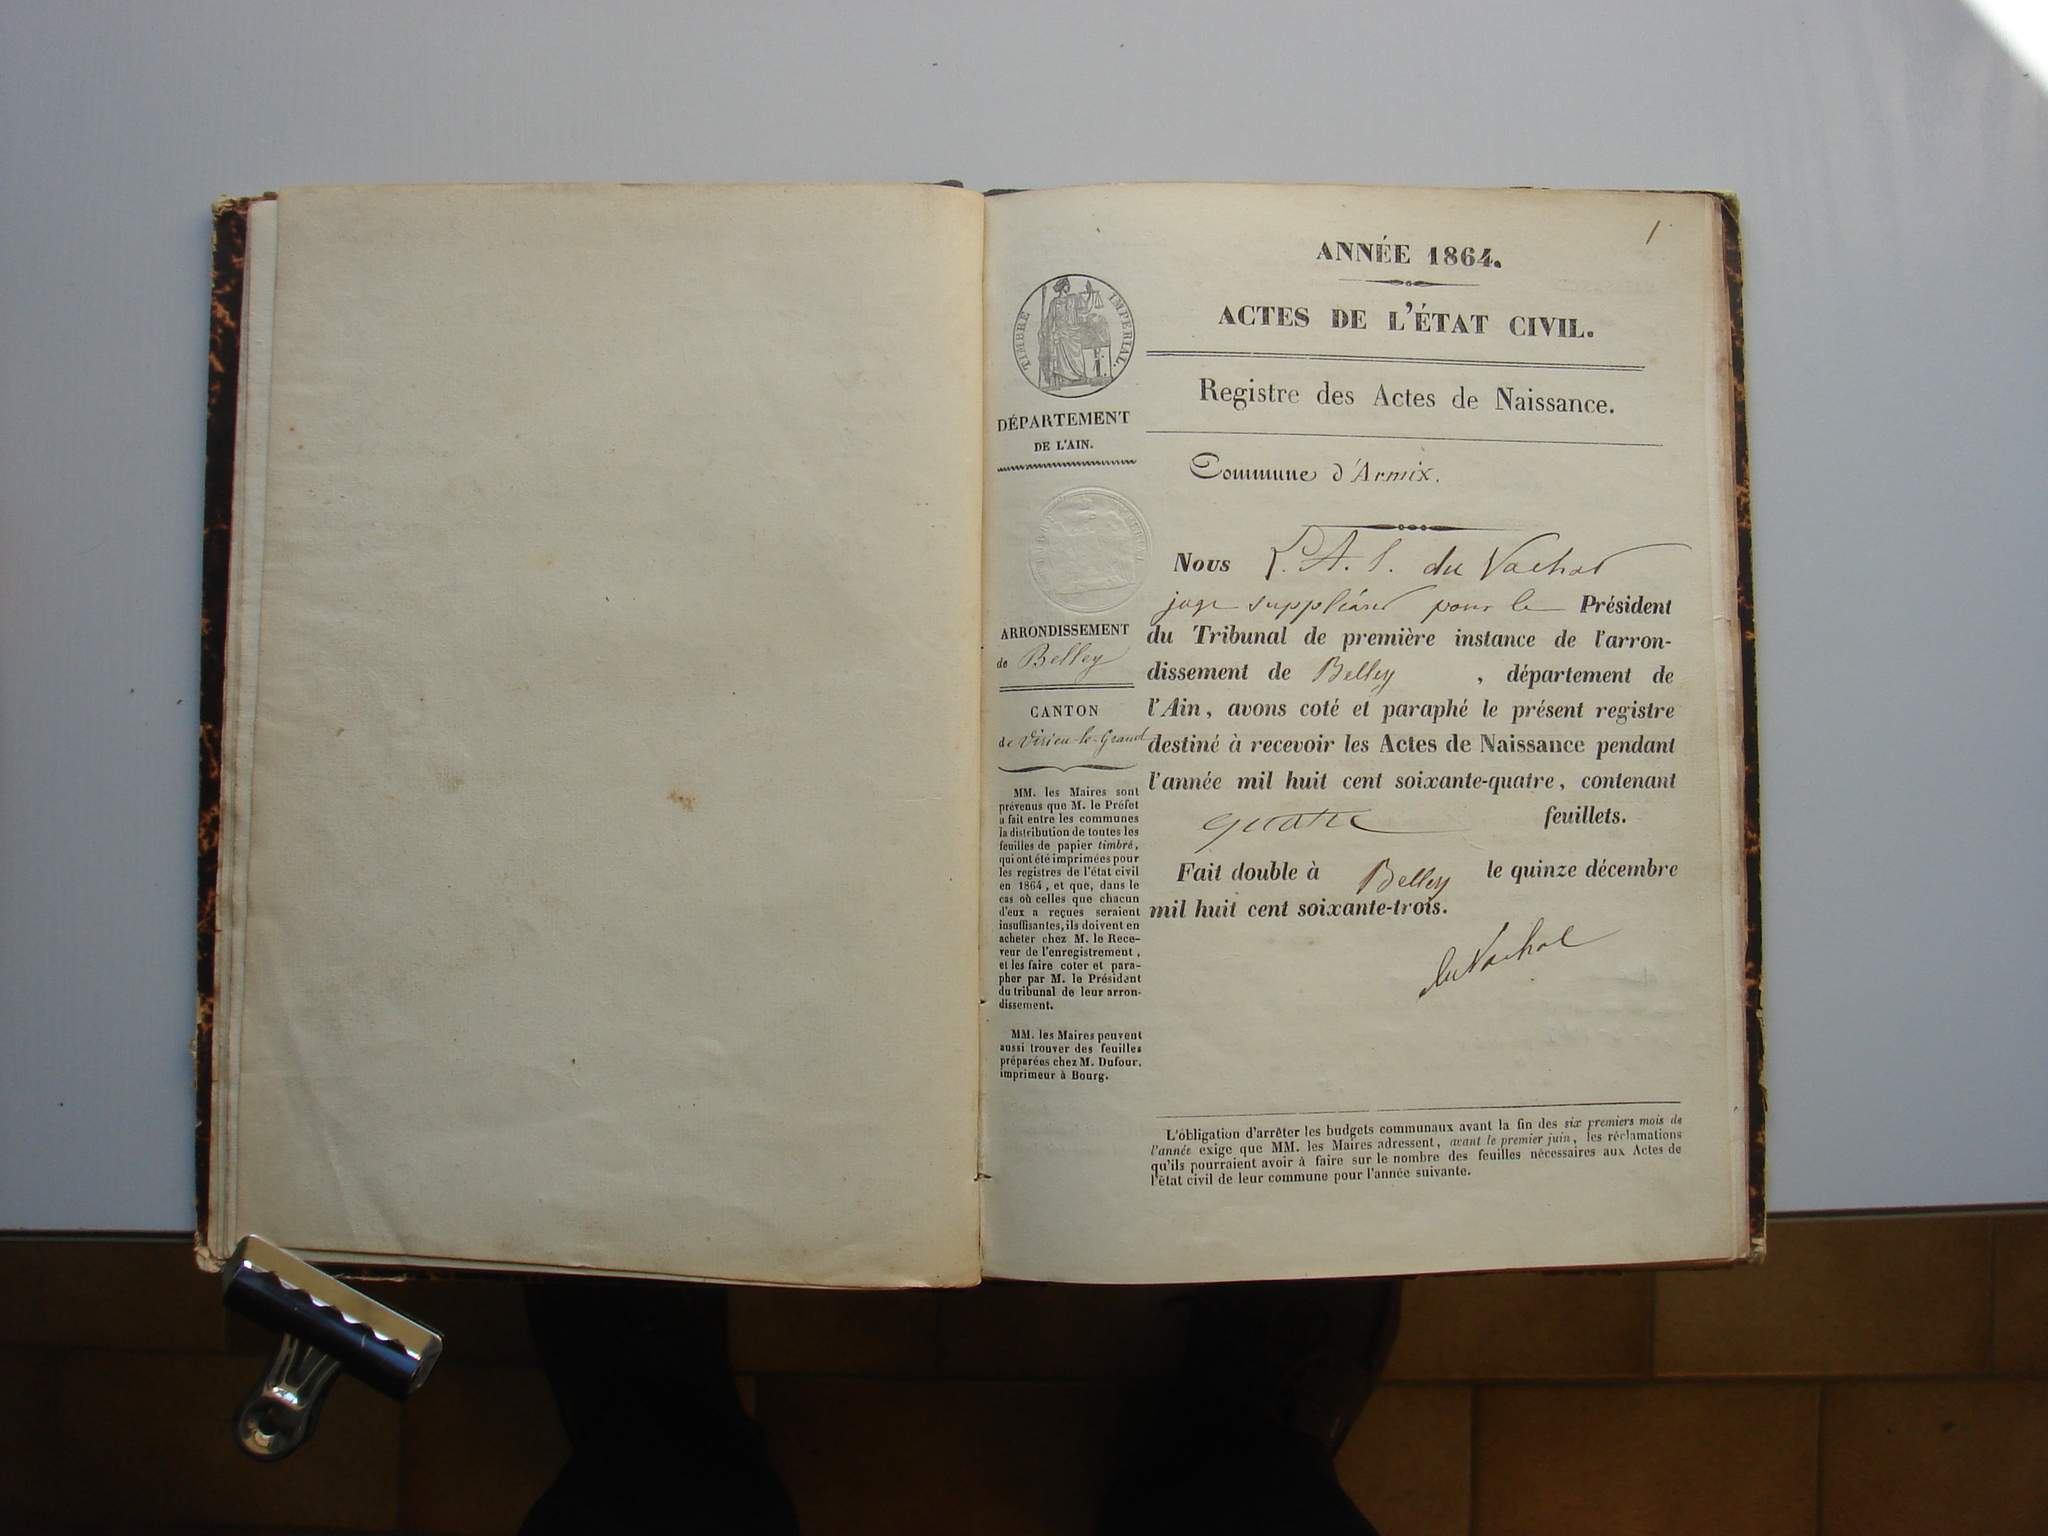 1
ANNÉE 1864.
ACTES DE L'ÉTAT CIVIL.
Registre des Actes de Naissance.
Commune d'Armix.
Nous L. A. S. du Vachat
juge suppléant pour le Président
du Tribunal de première instance de l'arron-
dissement de Belley , département de
l'Ain, avons coté et paraphé le présent registre
destiné à recevoir les Actes de Naissance pendant
l'année mil huit cent soixante-quatre, contenant
quatre feuillets.
Fait double à Belley le quinze décembre
mil huit cent soixante-trois.
du Vachat
TIMBRE IMPÉRIAL.
DÉPARTEMENT
DE L'AIN.
ARRONDISSEMENT
de Belley
CANTON
de Virieu-le-Grand
MM. les Maires sont
prévenus que M. le Préfet
a fait entre les communes
la distribution de toutes les
feuilles de papier timbré,
qui ont été imprimées pour
les registres de l'état civil
en 1864, et que, dans le
cas où celles que chacun
d'eux a reçues seraient
insuffisantes, ils doivent en
acheter chez M. le Rece-
veur de l'enregistrement,
et les faire coter et para-
pher par M. le Président
du tribunal de leur arron-
dissement.
MM. les Maires peuvent
aussi trouver des feuilles
préparées chez M. Dufour,
imprimeur à Bourg.
L'obligation d'arrêter les budgets communaux avant la fin des six premiers mois de
l'année exige que MM. les Maires adressent, avant le premier juin, les réclamations
qu'ils pourraient avoir à faire sur le nombre des feuilles nécessaires aux Actes de
l'état civil de leur commune pour l'année suivante.